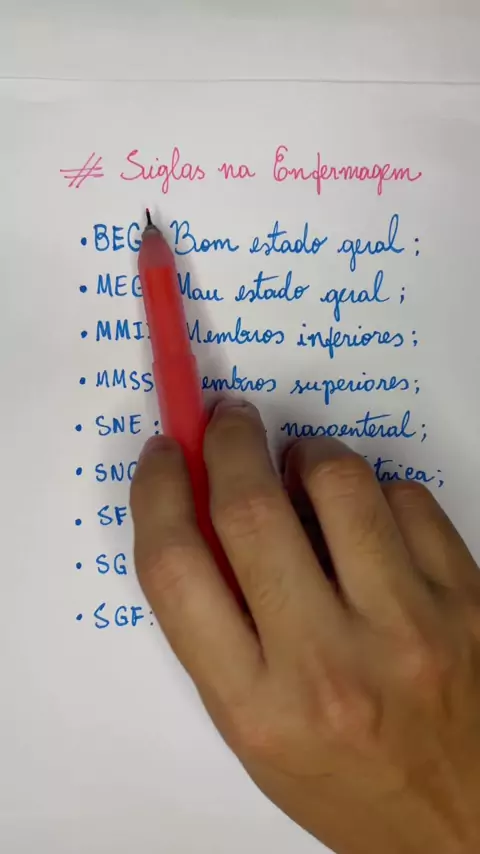 # Siglas na Enfermagem
• BEG Bom estado geral;
• MEG Mau estado geral;
• MMII Membros inferiores;
• MMSS membros superiores;
• SNE: nasoenteral;
• SN
• SF
• SG
• SGF: